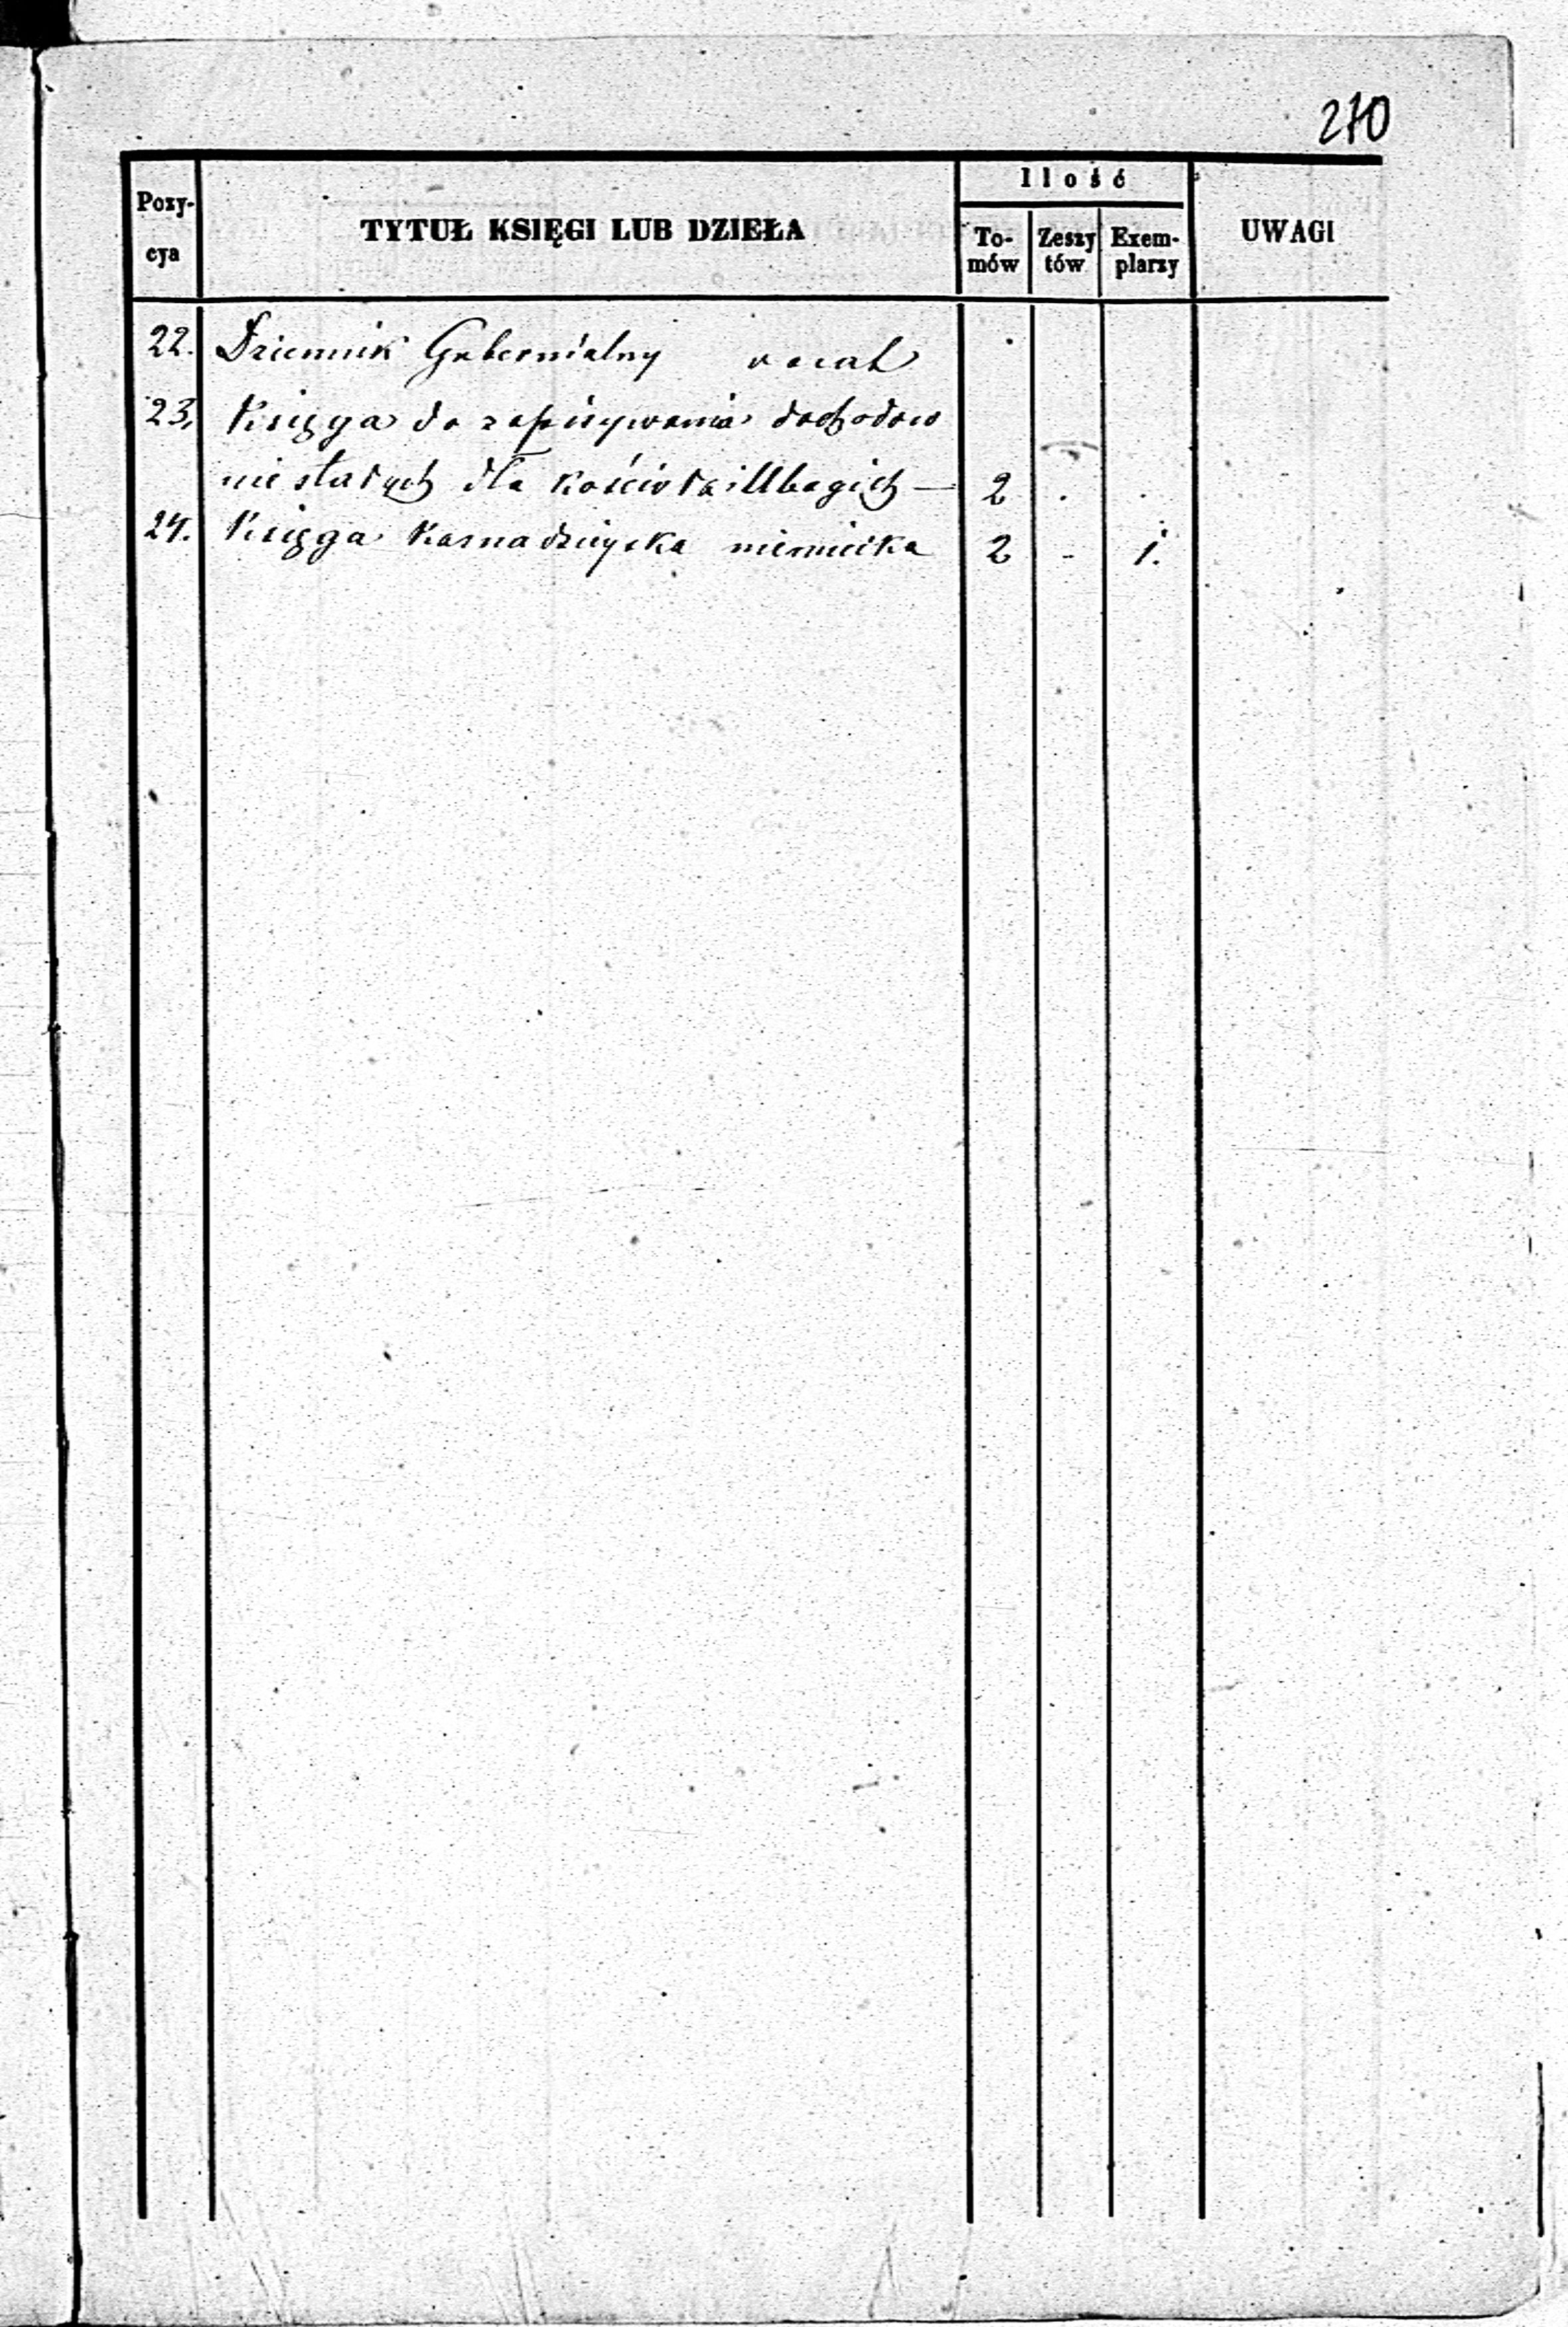 270
Pozy-
cya
TYTUŁ KSIĘGI LUB DZIEŁA
Ilość
To-
mów
Zeszy
tów
Exem-
plarzy
UWAGI
22. Dziennik Gubernialny vacat
23, Księga do zapisywania dochodow
nie stałych dla kościoła i Ubogich — 2 . .
24. Księga Kaznadzieyska niemiecka 2 - 1.